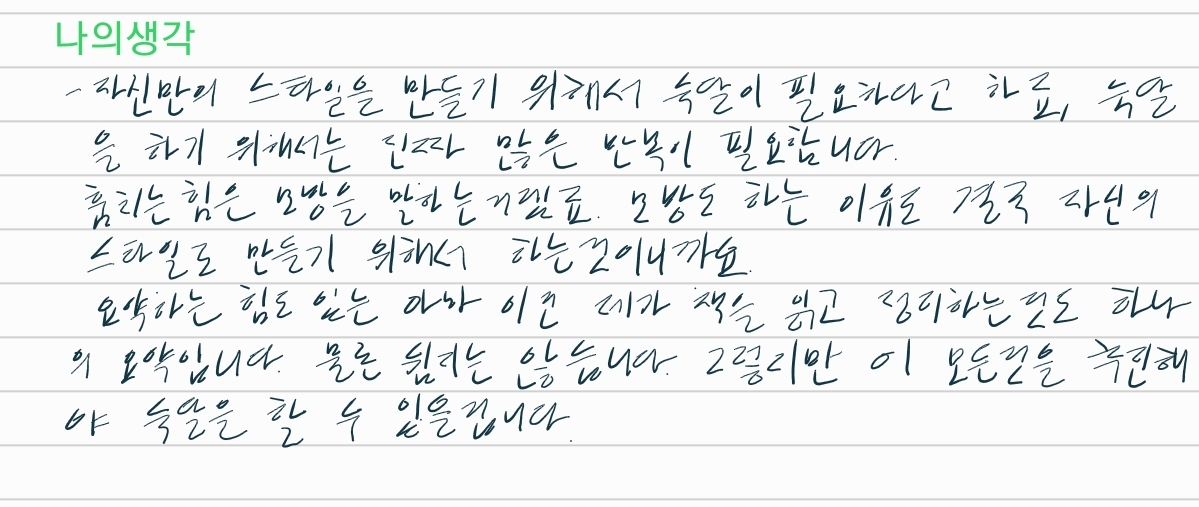 나의생각
- 자신만의 스타일을 만들기 위해서 숙달이 필요하다고 하죠, 숙달
을 하기 위해서는 진짜 많은 반복이 필요합니다.
훔치는 힘은 모방을 말하는거겠죠. 모방도 하는 이유도 결국 자신의
스타일로 만들기 위해서 하는것이니까요.
요약하는 힘도 있는 아마 이건 제가 책을 읽고 정리하는것도 하나
의 요약입니다. 물론 쉽지는 않습니다. 그렇지만 이 모든것을 축적해
야 숙달을 할 수 있을겁니다.